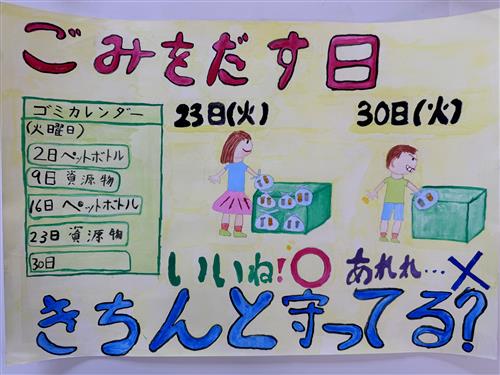 ごみをだす日
ゴミカレンダー
(火曜日)
2日 ペットボトル
9日 資源物
16日 ペットボトル
23日 資源物
30日
23日(火)
いいね!○
30日(火)
あれれ…×
きちんと守ってる?